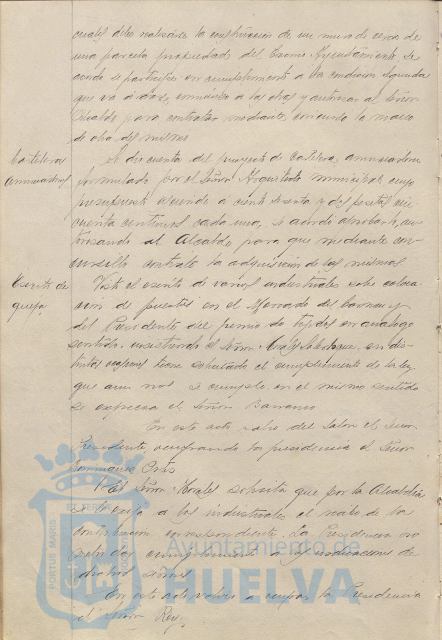 cuales debe realizarse la construcción de un muro de cerca de
una parcela propiedad del Excmo. Ayuntamiento, se
acordó
que va a dar comienzo a las obras y autorizar al Señor
Alcalde para contratar mediante concurso la mano
de obra del mismo
Carteleras
anunciadoras
Se dió cuenta del proyecto de Cartelera anunciadora
formulado por el Señor Arquitecto municipal cuyo
presupuesto asciende a ciento setenta y dos pesetas cin
cuenta centimos cada una, se acordó aprobarlo, au
torizando al Alcalde para que mediante con
cursillo contrate la adquisición de las mismas
Escrito de
queja
Visto el escrito de varios industriales sobre coloca
ción de puestos en el Mercado del Carmen y
del Presidente del gremio de tejidos en análogo
sentido, el Señor Morales en dis
tintas ocasiones tiene solicitado el cumplimiento de la ley
que aun no se cumple, en el mismo sentido
se expresa el Señor Barranco
En este acto sale del Salon el Señor
Presidente, ocupando la presidencia el Señor
Dominguez Ortiz
El Señor Morales solicita que por la Alcaldia
se a los industriales el recibo de la
contribución correspondiente. La Presidencia
de
dichos Señores
En este acto vuelve a ocupar la Presidencia
el Señor Rey.
PORTUS MARIS
ET TERRÆ
Ayuntamiento de
HUELVA